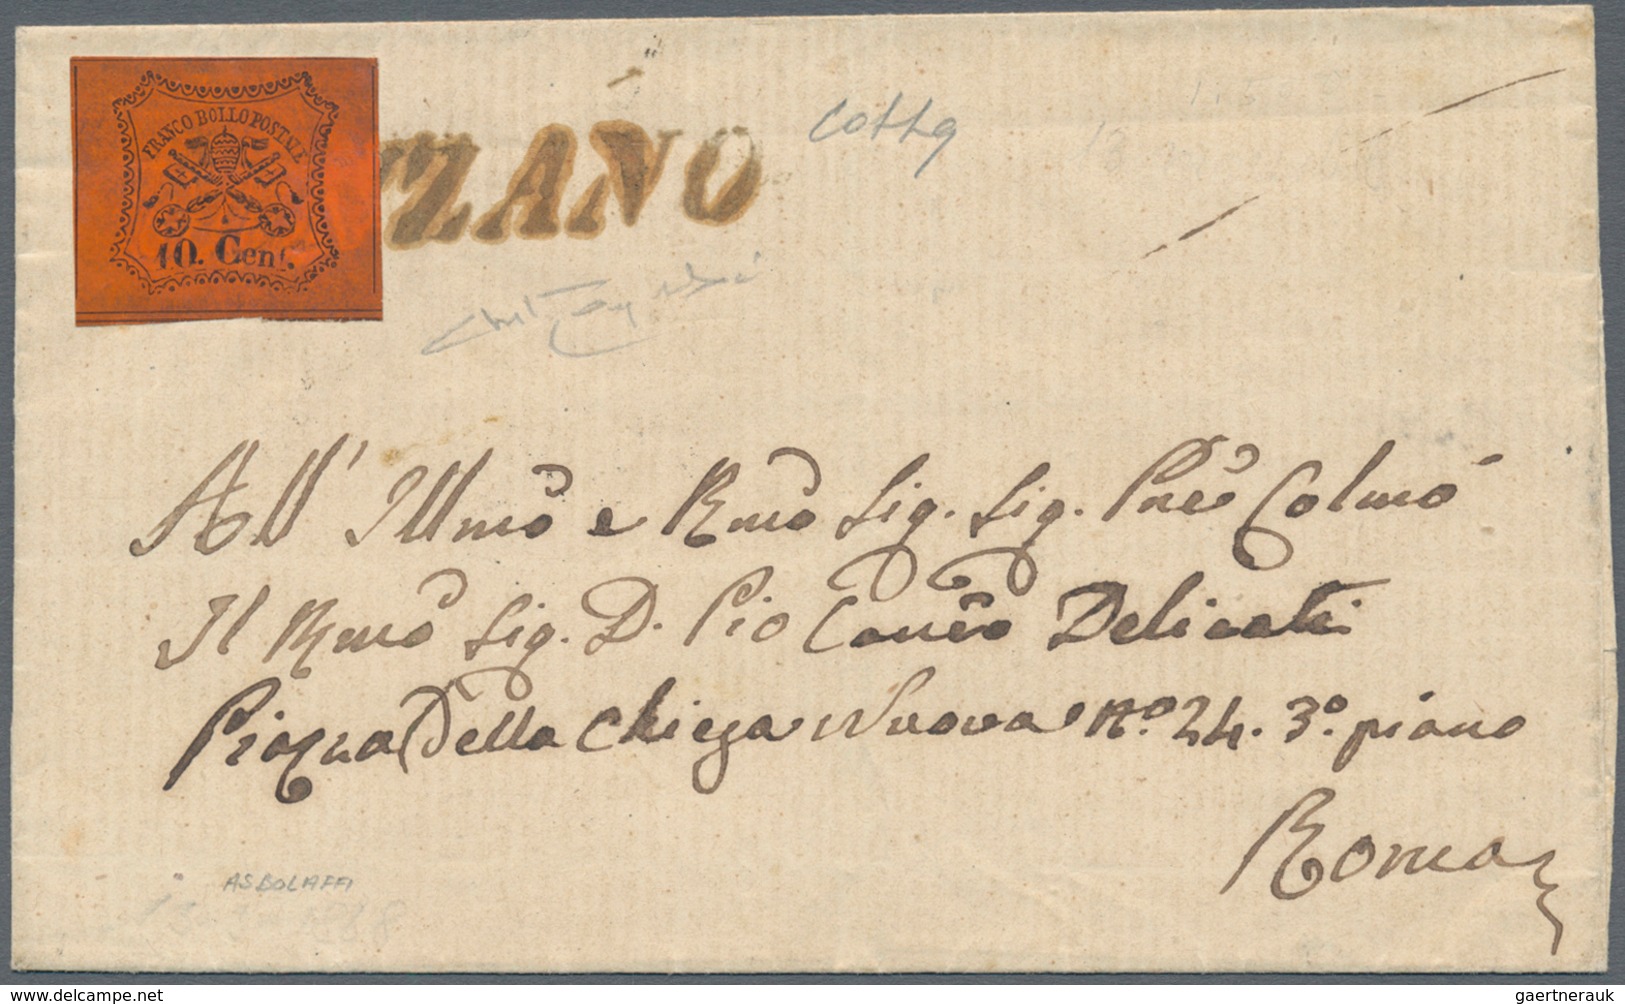 FRANCO BOLLO POSTALE
10. Cent.
ZANO
Cotta
All' Illmo e Rmo Sig. Sig. Pne Colmo
Il Rmo Sig. D. Pio Canco Delicati
Piazza Della Chiesa Nuova No. 24. 3.o piano
Roma
ASBOLAFFI
delcampe.net
gaertnerauk